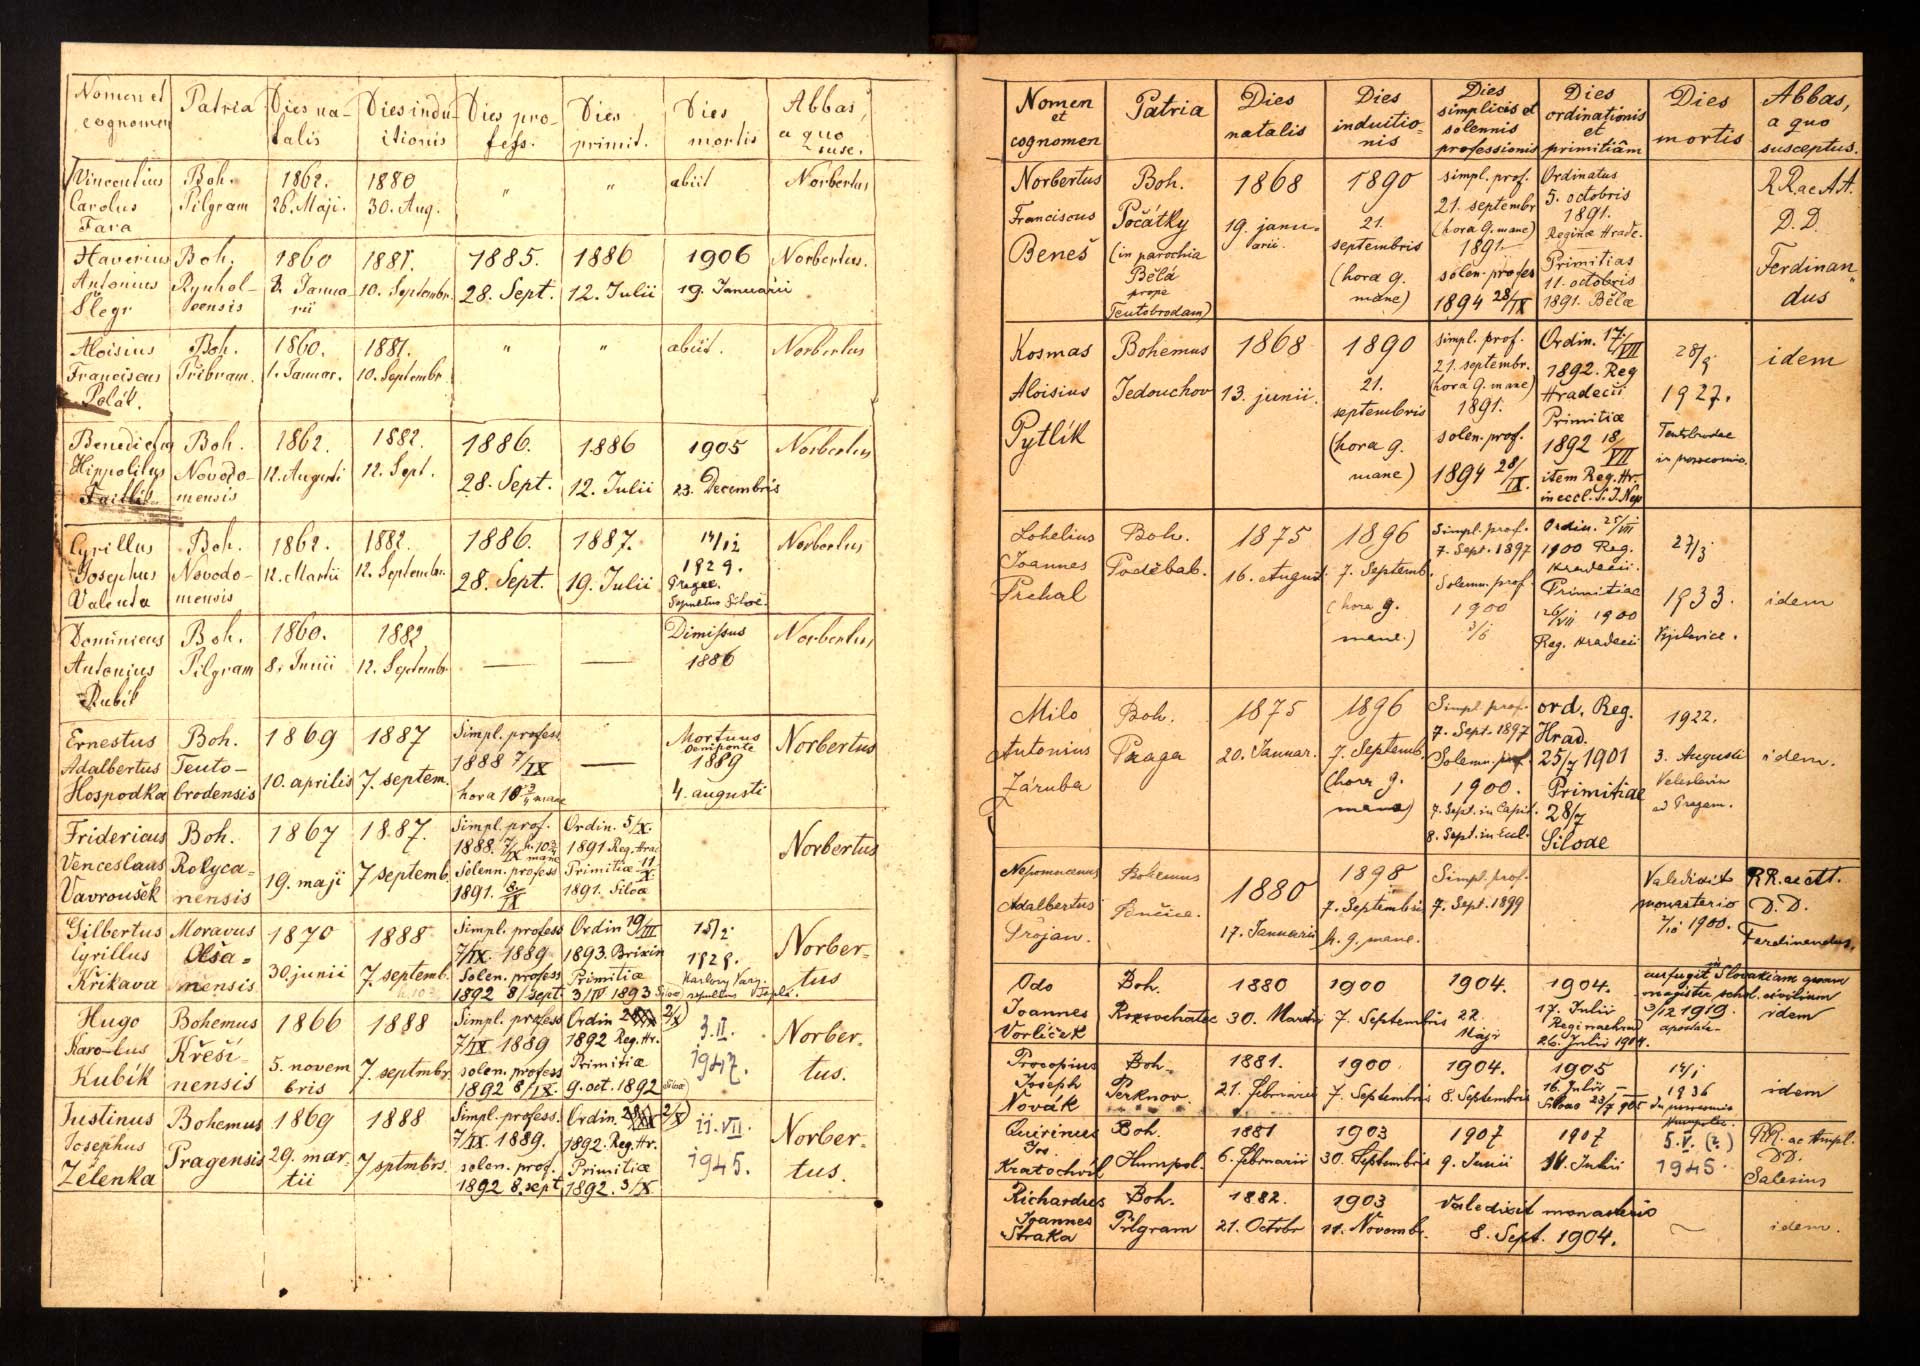 Nomen et cognomen
Patria
Dies natalis
Dies induitionis
Dies profess.
Dies primit.
Dies mortis
Abbas, a quo susc.
Vincentius
Carolus
Fara
Boh.
Pilgram
1862.
26. Maji.
1880
30. Aug.
"
"
abiit
Norbertus
Xaverius
Antonius
Šlegr
Boh.
1860
8. Januarii
1881.
10. Septembr.
1885.
28. Sept.
1886
12. Julii
1906
19. Januarii
Norbertus.
Aloisius
Franciscus
Polák.
Boh.
Přibram.
1860.
1. Januar.
1881.
10. Septembr.
"
"
abiit.
Norbertus
Benedictus
Hippolitus
Boh.
Novodomensis
1862.
12. Augusti
1882.
12. Sept.
1886.
28. Sept.
1886
12. Julii
1905
23. Decembris
Norbertus
Cyrillus
Josephus
Valenta
Boh.
Novodomensis
1862.
12. Martii
1882.
12. Septembr.
1886.
28. Sept.
1887.
19. Julii
14/12
1929.
Pragae.
Sepultus Siloe.
Norbertus
Dominicus
Antonius
Kubík
Boh.
Pilgram
1860.
8. Junii
1882
12. Septembr
—
—
Dimissus
1886
Norbertus
Ernestus
Adalbertus
Hospodka
Boh.
Teuto-
brodensis
1869
10. aprilis
1887
7. septem.
Simpl. profess
1888 7/IX
hora 10 3/4 mane
—
Mortuus
Oeniponte
1889
4. augusti
Norbertus
Fridericus
Venceslaus
Vavroušek
Boh.
Rokyca=
nensis
1867
19. maji
1887.
7 septemb.
Simpl. prof.
1888. 7/IX h. 10 3/4 mane
Solenn. profess
1891. 8/IX
Ordin. 5/X.
1891 Reg. Hrad
Primitiæ 11/X.
1891. Siloæ
Norbertus
Gilbertus
Cyrillus
Křikava
Moravus
Olša=
nensis
1870
30. junii
1888
7. septemb.
Simpl. profess
7/IX. 1889
Solen. profess
1892 8/sept.
Ordin 19/III
1893. Brixin
Primitiæ
3/IV 1893 Siloæ
15/2.
1928.
Karlovy Vary.
sepultus Teplá.
Norber-
tus
Hugo
Karo-lus
Kubík
Bohemus
Křeší-
nensis
1866
5. novem
bris
1888
7. septmbr.
Simpl. profess
7/IX 1889
solen. profess
1892 8/IX.
Ordin 2/X
1892 Reg. Hr.
Primitiæ
9. oct. 1892 Siloæ
3. II.
1947.
Norber-
tus.
Justinus
Josephus
Zelenka
Bohemus
Pragensis
1869
29. mar-
tii
1888
7 sptmbris.
Simpl. profess.
7/IX. 1889.
solen. prof.
1892 8. sept
Ordin. 2/X
1892. Reg. Hr.
Primitiæ
1892. 3/X.
11. VII.
1945.
Norber-
tus.
Nomen et cognomen
Patria
Dies natalis
Dies induitio-
nis
Dies simplicis et solennis professionis
Dies ordinationis et primitiâm
Dies mortis
Abbas, a quo susceptus.
Norbertus
Franciscus
Beneš
Boh.
Počátky
(in parochia
Bělá
prope
Teutobrodam)
1868
19. janu-
arii.
1890
21.
septembris
(hora 9.
mane)
simpl. prof.
21. septembr
(hora 9. mane)
1891.
solen. profes
1894 28/IX
Ordinatus
5. octobris
1891.
Reginæ Hradc.
Primitias
11. octobris
1891. Bělæ
RR. ac AA.
D. D.
Ferdinan-
dus
Kosmas
Aloisius
Pytlík
Bohemus
Jedouchov
1868
13. junii.
1890
21.
septembris
(hora 9.
mane)
simpl. prof.
21. septembr.
(hora 9. mane)
1891.
solen. prof.
1894 28/IX.
Ordin. 17/VII
1892. Reg
Hradecii
Primitiæ
1892 18/VII
item Reg. Hr.
in eccl. S. J. Nep
1927.
Teutobrodae
in nosocomio.
idem
Lohelius
Joannes
Prchal
Boh.
Poděbab.
1875
16. August.
1896
7. Septemb.
(hora 9.
mane.)
Simpl. prof.
7. Sept. 1897
Solemn. prof.
1900
3/6
Ordin. 25/VII
1900 Reg.
Hradecii.
Primitiae
26/VII 1900
Reg. Hradecii
27/3
1933.
idem
Milo
Antonius
Záruba
Boh.
Praga
1875
20. Januar.
1896
7. Septemb.
(hora 9.
mane)
Simpl. prof.
7. Sept. 1897
Solemn. prof.
1900.
7. Sept. in Capit.
8. Sept. in Eccl.
ord. Reg.
Hrad.
25/7 1901
Primitiae
28/7
Siloae
1922.
3. Augusti
Veleslavin
ad Pragam.
idem.
Nepomucenus
Adalbertus
Trojan.
Bohemus
1880
17. Januarii
1898
7. Septembris
h. 9. mane.
Simpl. prof.
7. Sept. 1899
Valedixit
monasterio
2/10 1900.
RR. ac AA.
D. D.
Ferdinandus.
Odo
Joannes
Vorlíček
Boh.
Rozsochatec
1880
30. Martii
1900
7. Septembris
1904.
22.
Maji
1904.
17. Julii
Reginaehrad
26. Julii 1904.
aufugit in Slovakiam quam
magister schol. civilium
3/12 1919.
apostata
idem
Procopius
Joseph
Novák
Boh.
Perknov.
1881.
21. Februarii
1900
7. Septembris
1904.
8. Septembris
1905
16. Julii —
Siloae 23/7 905
14/1
1936
In nosocomio
Humpolec.
idem
Quirinus
Jos.
Kratochvíl
Boh.
Humpol.
1881
6. Februarii
1903
30. Septembris
1907
9. Junii
1907
14. Julii
5. V. (?)
1945.
RR. ac Ampl.
DD.
Salesius
Richardus
Joannes
Straka
Boh.
Pilgram
1882.
21. Octobr
1903
11. Novemb.
Valedixit monasterio
8. Sept. 1904.
~
idem.